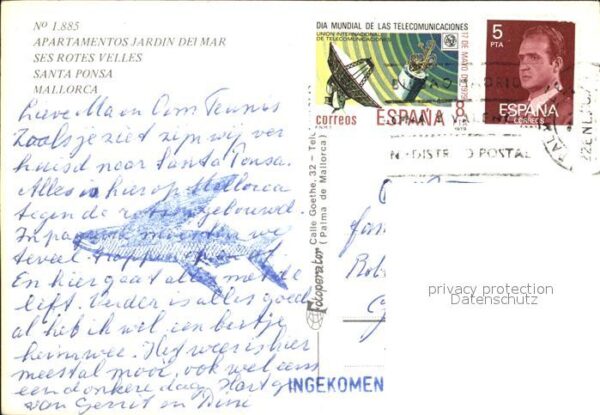 Nº 1.885
APARTAMENTOS JARDIN DEL MAR
SES ROTES VELLES
SANTA PONSA
MALLORCA
Lieve Ma en Om Teunis
Zoals je ziet zijn wij ver
huisd naar Santa Ponsa.
Alles is hier op Mallorca
tegen de rotsen gebouwd.
In moeten we
teveel trappen op en af
En hier gaat alles met de
lift. Verder is alles goed
al heb ik wel een beetje
heimwee. Het weer is hier
meestal mooi, ook wel eens
een donkere dag. Hart gr
van Gerrit en Dini
Fotoperator
Calle Goethe, 32 - Tel
(Palma de Mallorca)
DIA MUNDIAL DE LAS TELECOMUNICACIONES
UNION INTERNACIONAL
DE TELECOMUNICACIONES
17 DE MAYO DE 1979
correos
ESPAÑA 8
1979
5
PTA
ESPAÑA
CORREOS
Nº DISTRITO POSTAL
22 ENE
privacy protection
Datenschutz
INGEKOMEN